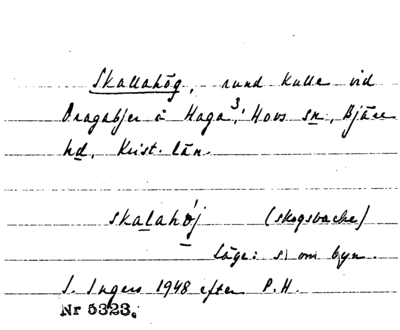 Skallahög, rund kulle vid
Dragabjer i Haga³, Hovs sn, Bjäre
hd, Krist. län
skalahøj (skogsbacke)
läge: s om byn.
I. Ingers 1948 efter P.H.
Nr 5323.